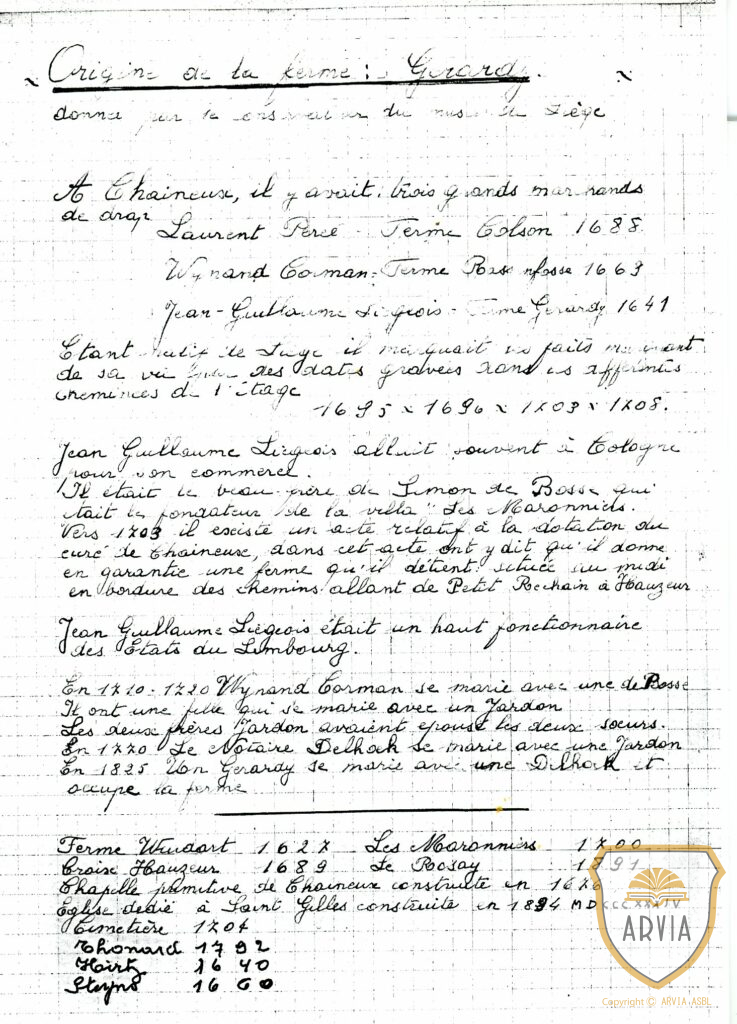 Origine de la ferme : Gerardy.
donnée par le conservateur du musée de Liège
A Chaineux, il y avait trois grands marchands
de drap
Laurent Peree Ferme Colson 1688
Wynand Corman - Ferme Rosse 1669
Jean-Guillaume Liègeois - Ferme Gerardy 1641
Etant natif de Liège il marquait les faits marquant
de sa vie par des dates gravées dans les différentes
cheminées de l'étage
1695 x 1696 x 1703 x 1708.
Jean Guillaume Liègeois allait souvent à Cologne
pour son commerce.
Il était le beau-frère de Simon de Bosse qui
était le fondateur de la villa "Les Maronniers.
Vers 1703 il existe un acte relatif à la dotation du
curé de Chaineux, dans cet acte ont y dit qu'il donne
en garantie une ferme qu'il détient située au midi
en bordure des chemins allant de Petit Rechain à Hauzeur
Jean Guillaume Liègeois était un haut fonctionnaire
des Etats du Limbourg.
En 1710-1720 Wynand Corman se marie avec une de Bosse
Il ont une fille qui se marie avec un Jardon
Les deux frères Jardon avaient épousé les deux sœurs.
En 1770 Le Notaire Delhak se marie avec une Jardon
En 1825 Un Gerardy se marie avec une Delhak et
occupe la ferme
Ferme Windart 1627 Les Maronniers 1700
Croix Hauzeur 1689 Le Rosay 1891
Chapelle primitive de Chaineux construite en 1676
Eglise dedié à Saint Gilles construite en 1894 MDCCCXXXIV
Cimetière 1704
Thonard 1792
Hirtz 1640
Steyns 1660
ARVIA
Copyright © ARVIA ASBL